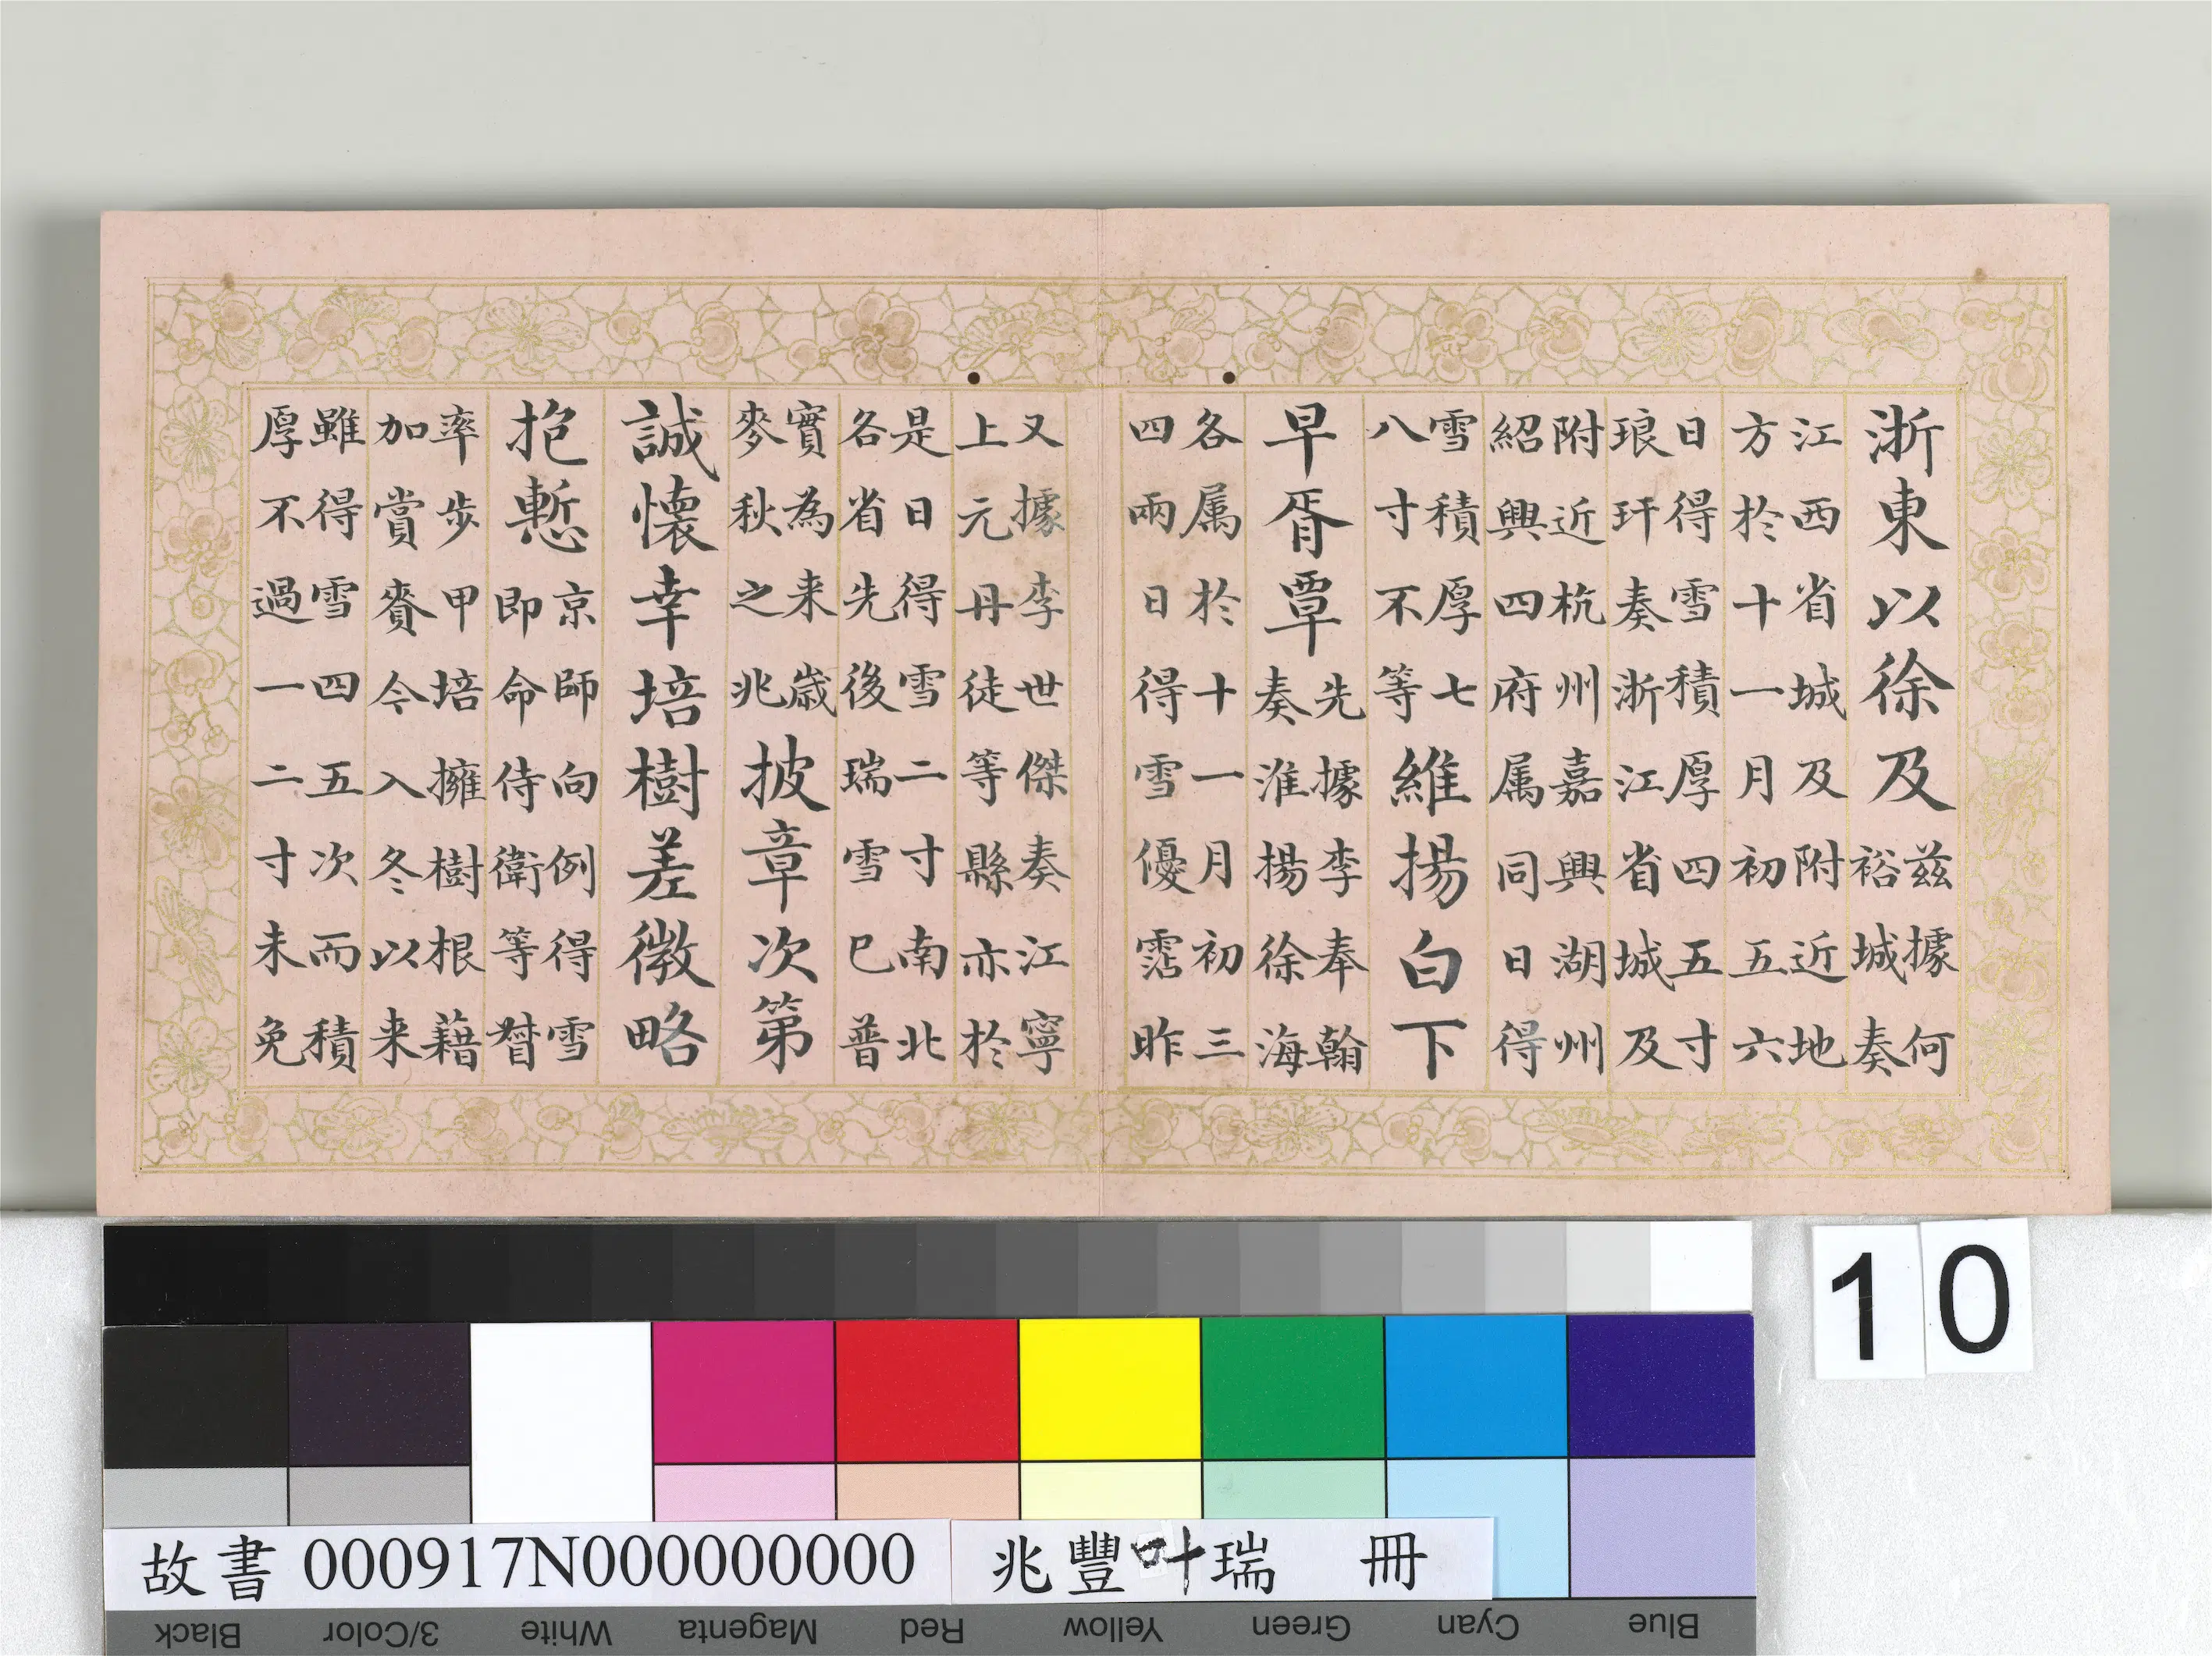 浙東以徐及
兹據何
裕城奏
江西省城及附近地
方於十一月初五六
日得雪積厚四五寸
琅玕奏浙江省城及
附近杭州嘉興湖州
紹興四府属同日得
雪積厚七
八寸不等
維揚白下
早胥覃
先據李奉翰
奏淮揚徐海
各属於十一月初三
四兩日得雪優霑昨
又據李世傑奏江寧
上元丹徒等縣亦於
是日得雪二寸南北
各省先後瑞雪巳普
實為来歲
麥秋之兆
披章次第
誠懷幸培樹差徵略
抱慙
京師向例得雪
即命侍衛等督
率步甲培擁樹根藉
加賞賚今入冬以来
雖得雪四五次而積
厚不過一二寸未免
10
故書 000917N000000000
兆豐叶瑞 冊
Black 3/Color White Magenta Red Yellow Green Cyan Blue